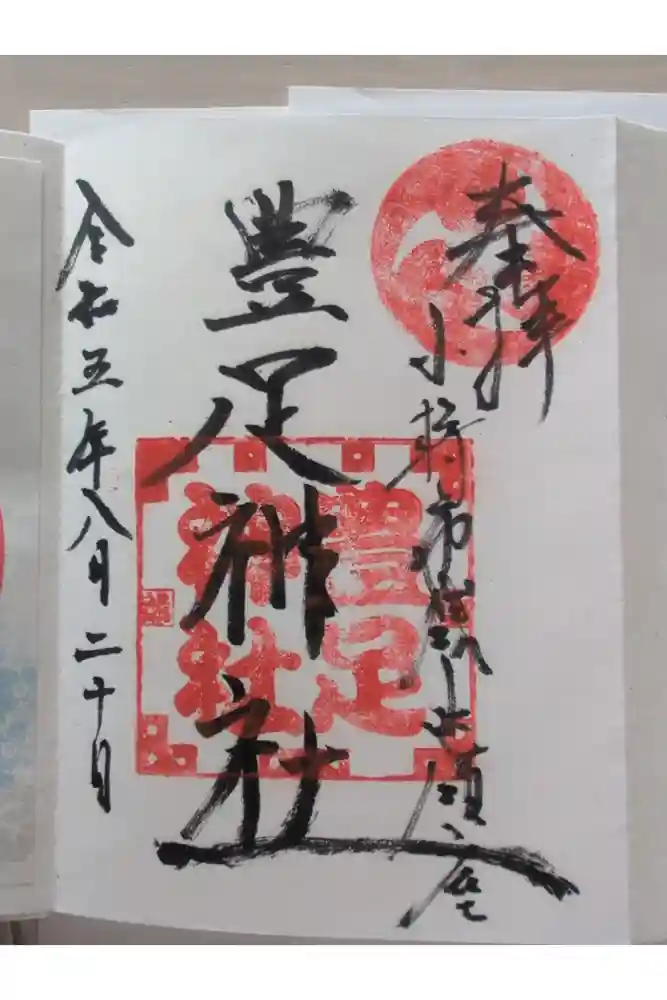 奉拝
小樽市
豊足神社
豊足
神社
令和五年八月二十日